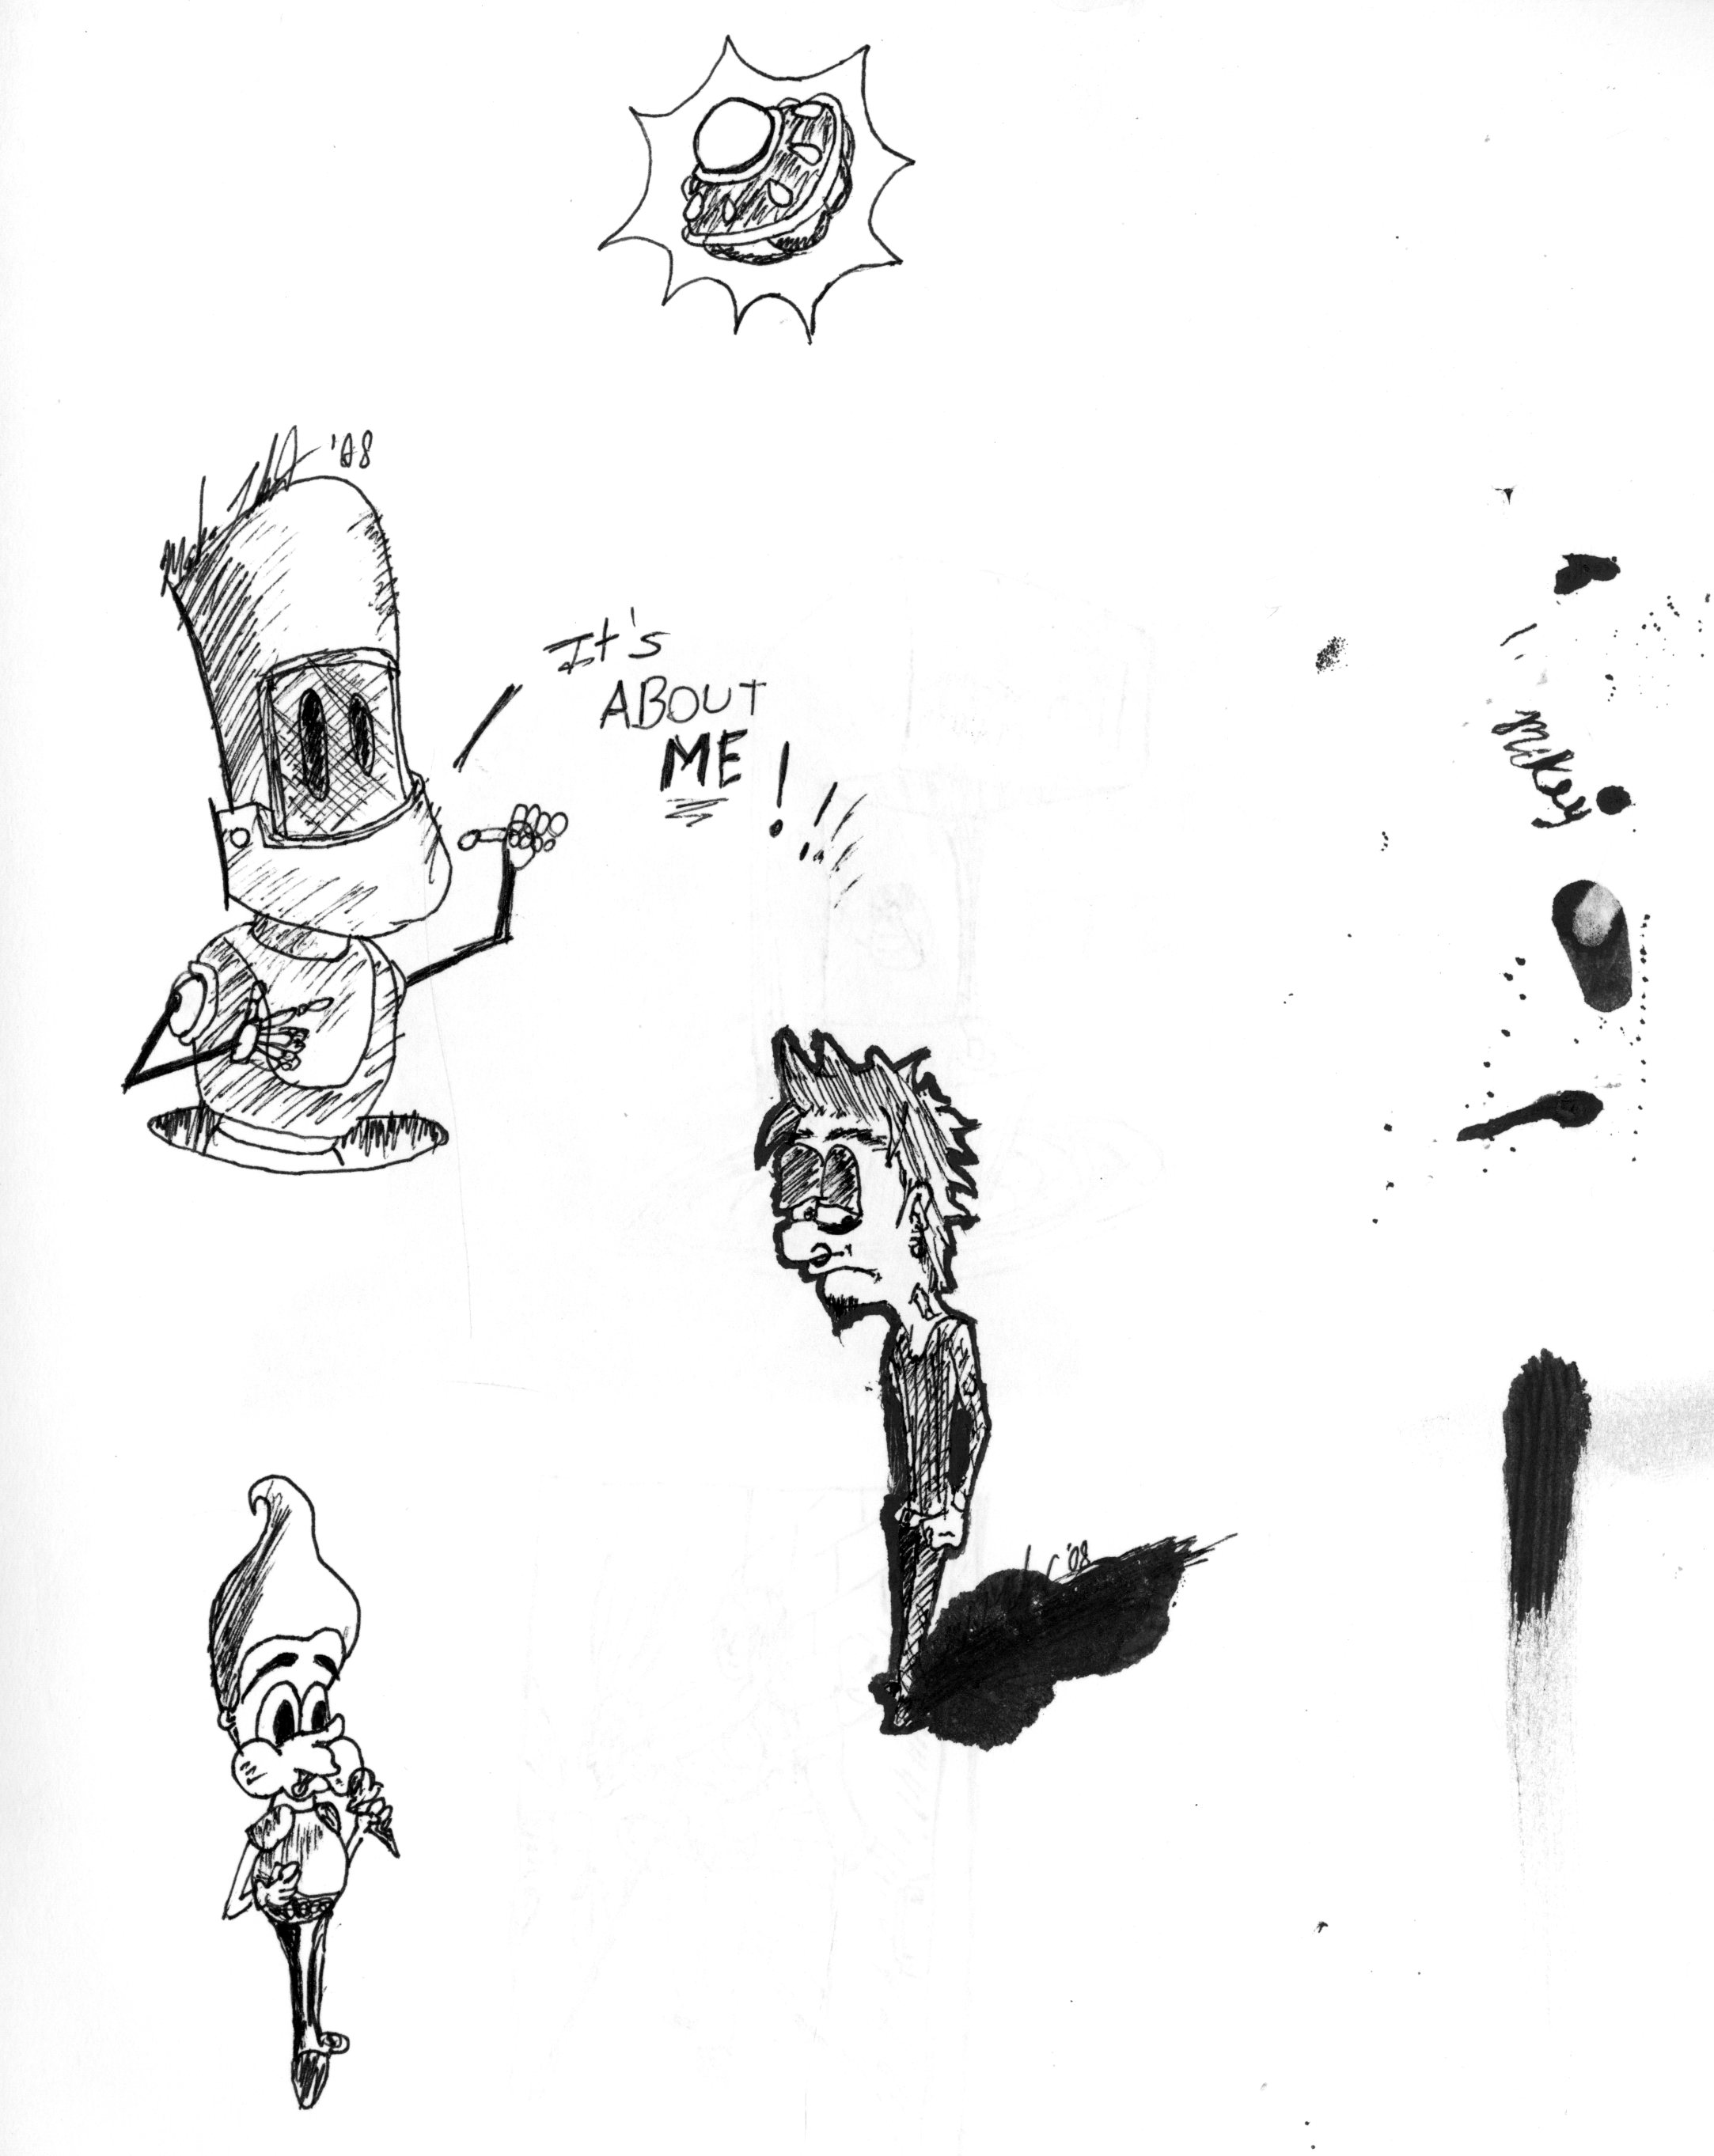 '08
It's
ABOUT
ME!!!
Mikey
'08